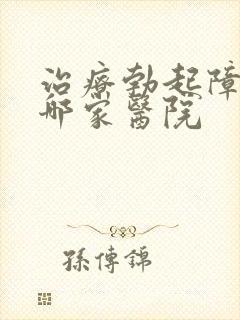 治療勃起障
哪家醫院
孫傳錦